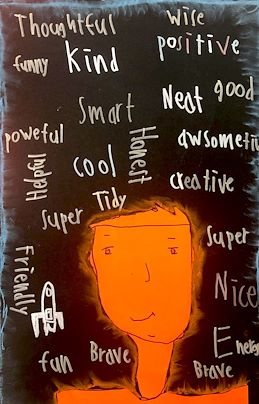 Thoughtful wise
funny Kind positive
Smart Neat good
poweful Happy cool Honest awsometi
creative
Tidy
super super
Friendly Nice
fun Brave Energ
Brave